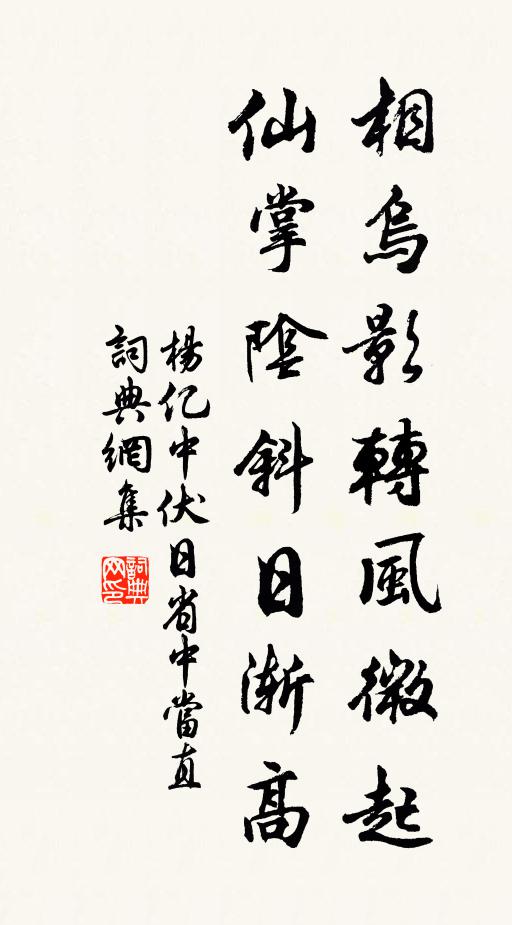 相烏影轉風微起
仙掌陰斜日漸高
楊億中伏日省中當直
詞典網集
詞典网印